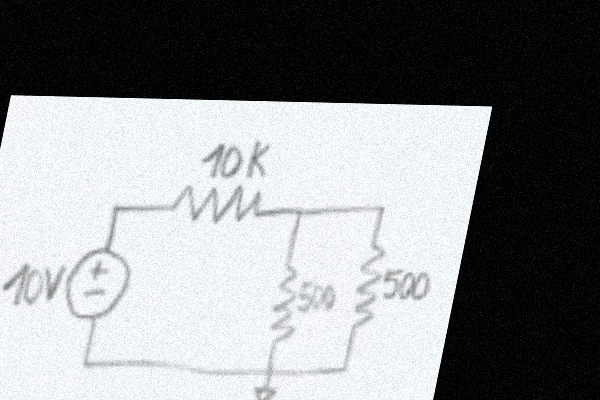 10K
10V
500
500